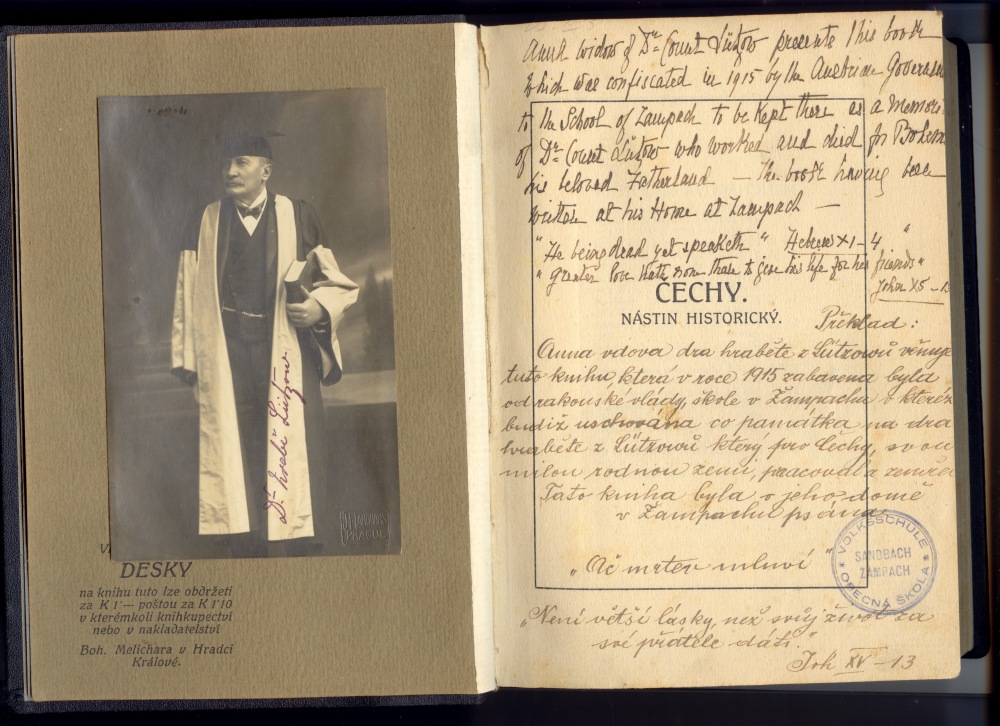 Dr. hrabě Lützow
PRAGUE
DESKY
na knihu tuto lze obdržeti
za K 1·— poštou za K 1·10
v kterémkoli knihkupectví
nebo v nakladatelství
Boh. Melichara v Hradci
Králové.
widow of Dr. Count Lützow presents this book
which was confiscated in 1915 by the Austrian
to the School of Zampach to be kept there as a
of Dr. Count Lützow who worked and died for
his beloved Fatherland — the book having been
written at his Home at Zampach —
"He being dead yet speaketh" Hebrew XI-4
"Greater love hath none than to give his life for his friends"
John XV-13
ČECHY.
NÁSTIN HISTORICKÝ.
Překlad:
Anna vdova dra hraběte z Lützowů věnuje
tuto knihu, která v roce 1915 zabavena byla
od rakouské vlády, škole v Žampachu v kteréž
budiž uschována co památka na dra
hraběte z Lützowů který pro Čechy, svou
milou rodnou zemi, pracoval a zemřel
Tato kniha byla v jeho domě
v Žampachu psána.
"Ač mrtev mluví"
VOLKSSCHULE
SANDBACH
ŽAMPACH
OBECNÁ ŠKOLA
"Není větší lásky, než svůj život za
své přátele dáti."
Joh XV-13